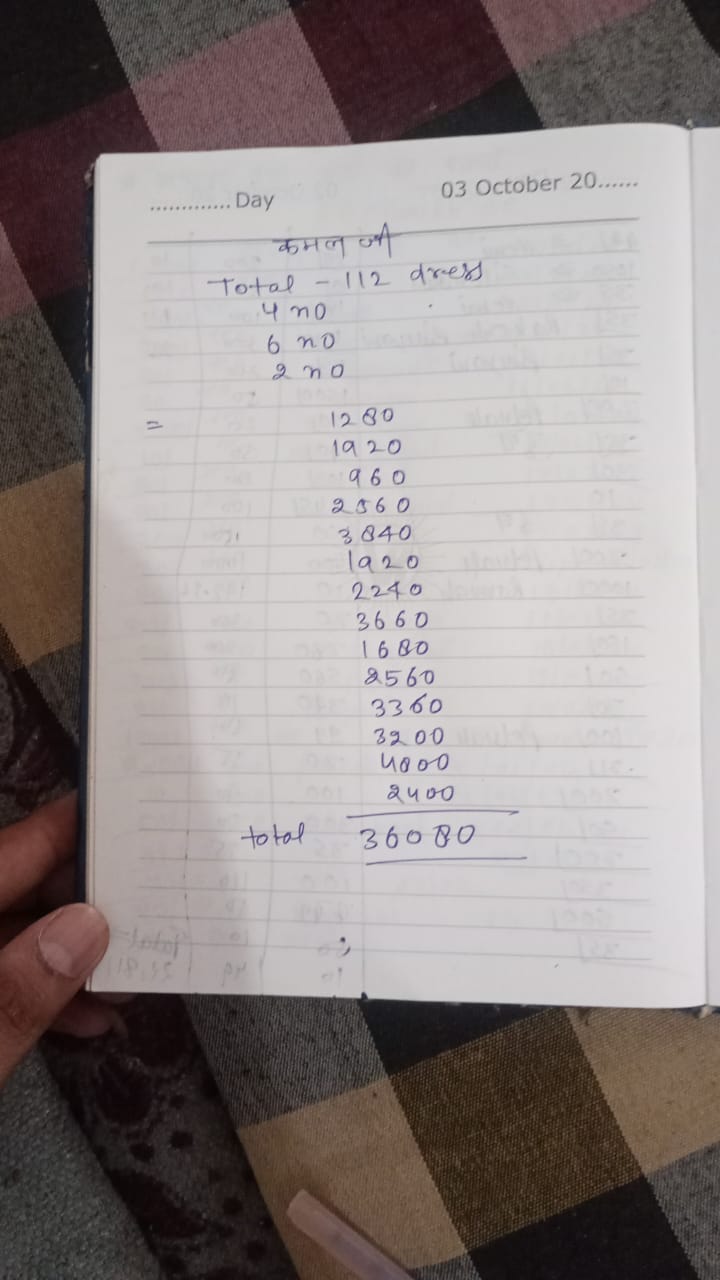 ............. Day 03 October 20......
कमल जी
Total - 112 dress
4 no
6 no
2 no
= 1280
1920
960
2560
3840
1920
2240
3660
1680
2560
3360
3200
4800
2400
total 36080